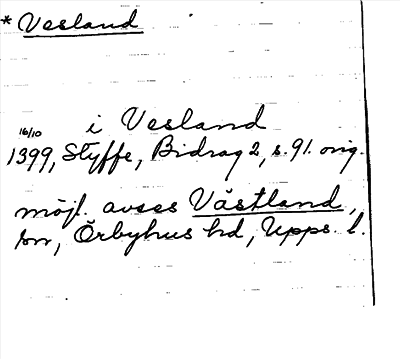 * Vesland
i Vesland
16/10
1399, Styffe, Bidrag 2, s. 91. orig.
möjl. avses Västland,
sn, Örbyhus hd, Upps. l.